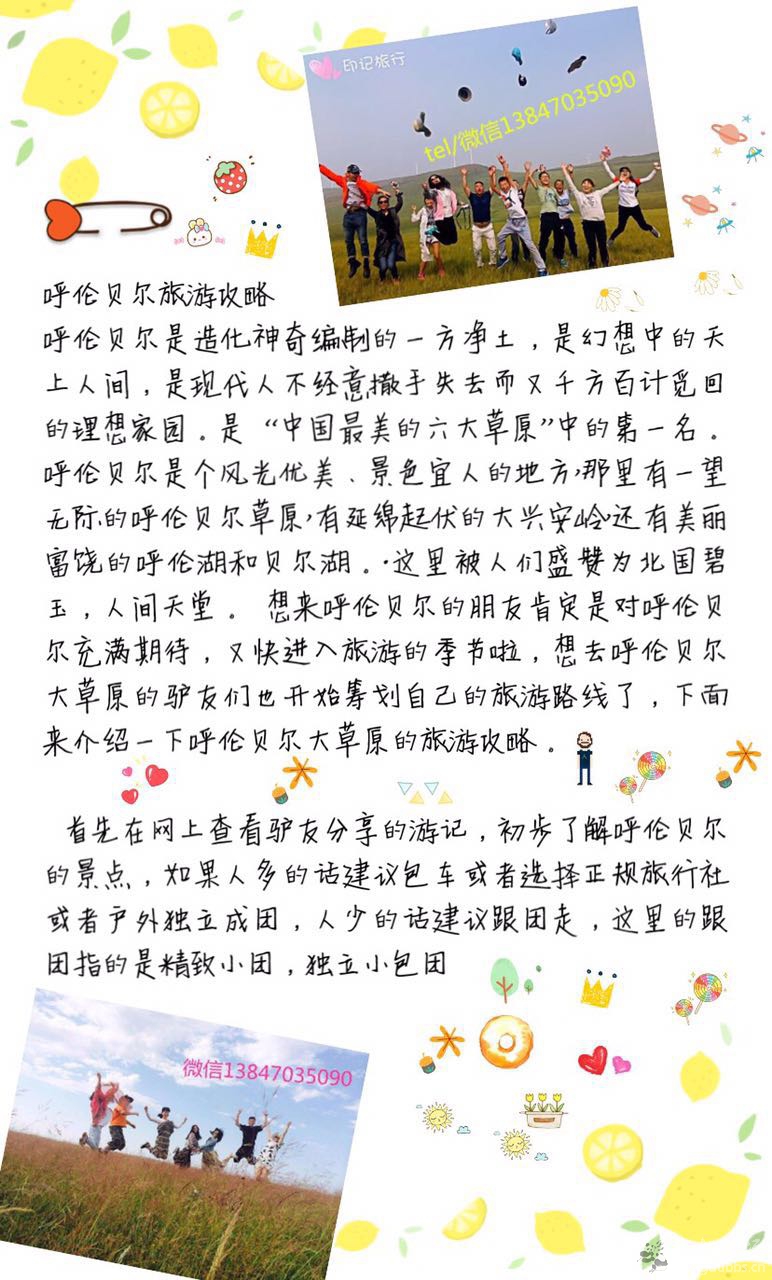 印记旅行
tel/微信13847035090
呼伦贝尔旅游攻略
呼伦贝尔是造化神奇编制的一方净土，是幻想中的天
上人间，是现代人不经意撒手失去而又千方百计觅回
的理想家园。是“中国最美的六大草原”中的第一名。
呼伦贝尔是个风光优美、景色宜人的地方,那里有一望
无际的呼伦贝尔草原,有延绵起伏的大兴安岭,还有美丽
富饶的呼伦湖和贝尔湖。·这里被人们盛赞为北国碧
玉，人间天堂。 想来呼伦贝尔的朋友肯定是对呼伦贝
尔充满期待，又快进入旅游的季节啦，想去呼伦贝尔
大草原的驴友们也开始筹划自己的旅游路线了，下面
来介绍一下呼伦贝尔大草原的旅游攻略。
首先在网上查看驴友分享的游记，初步了解呼伦贝尔
的景点，如果人多的话建议包车或者选择正规旅行社
或者户外独立成团，人少的话建议跟团走，这里的跟
团指的是精致小团，独立小包团
微信13847035090